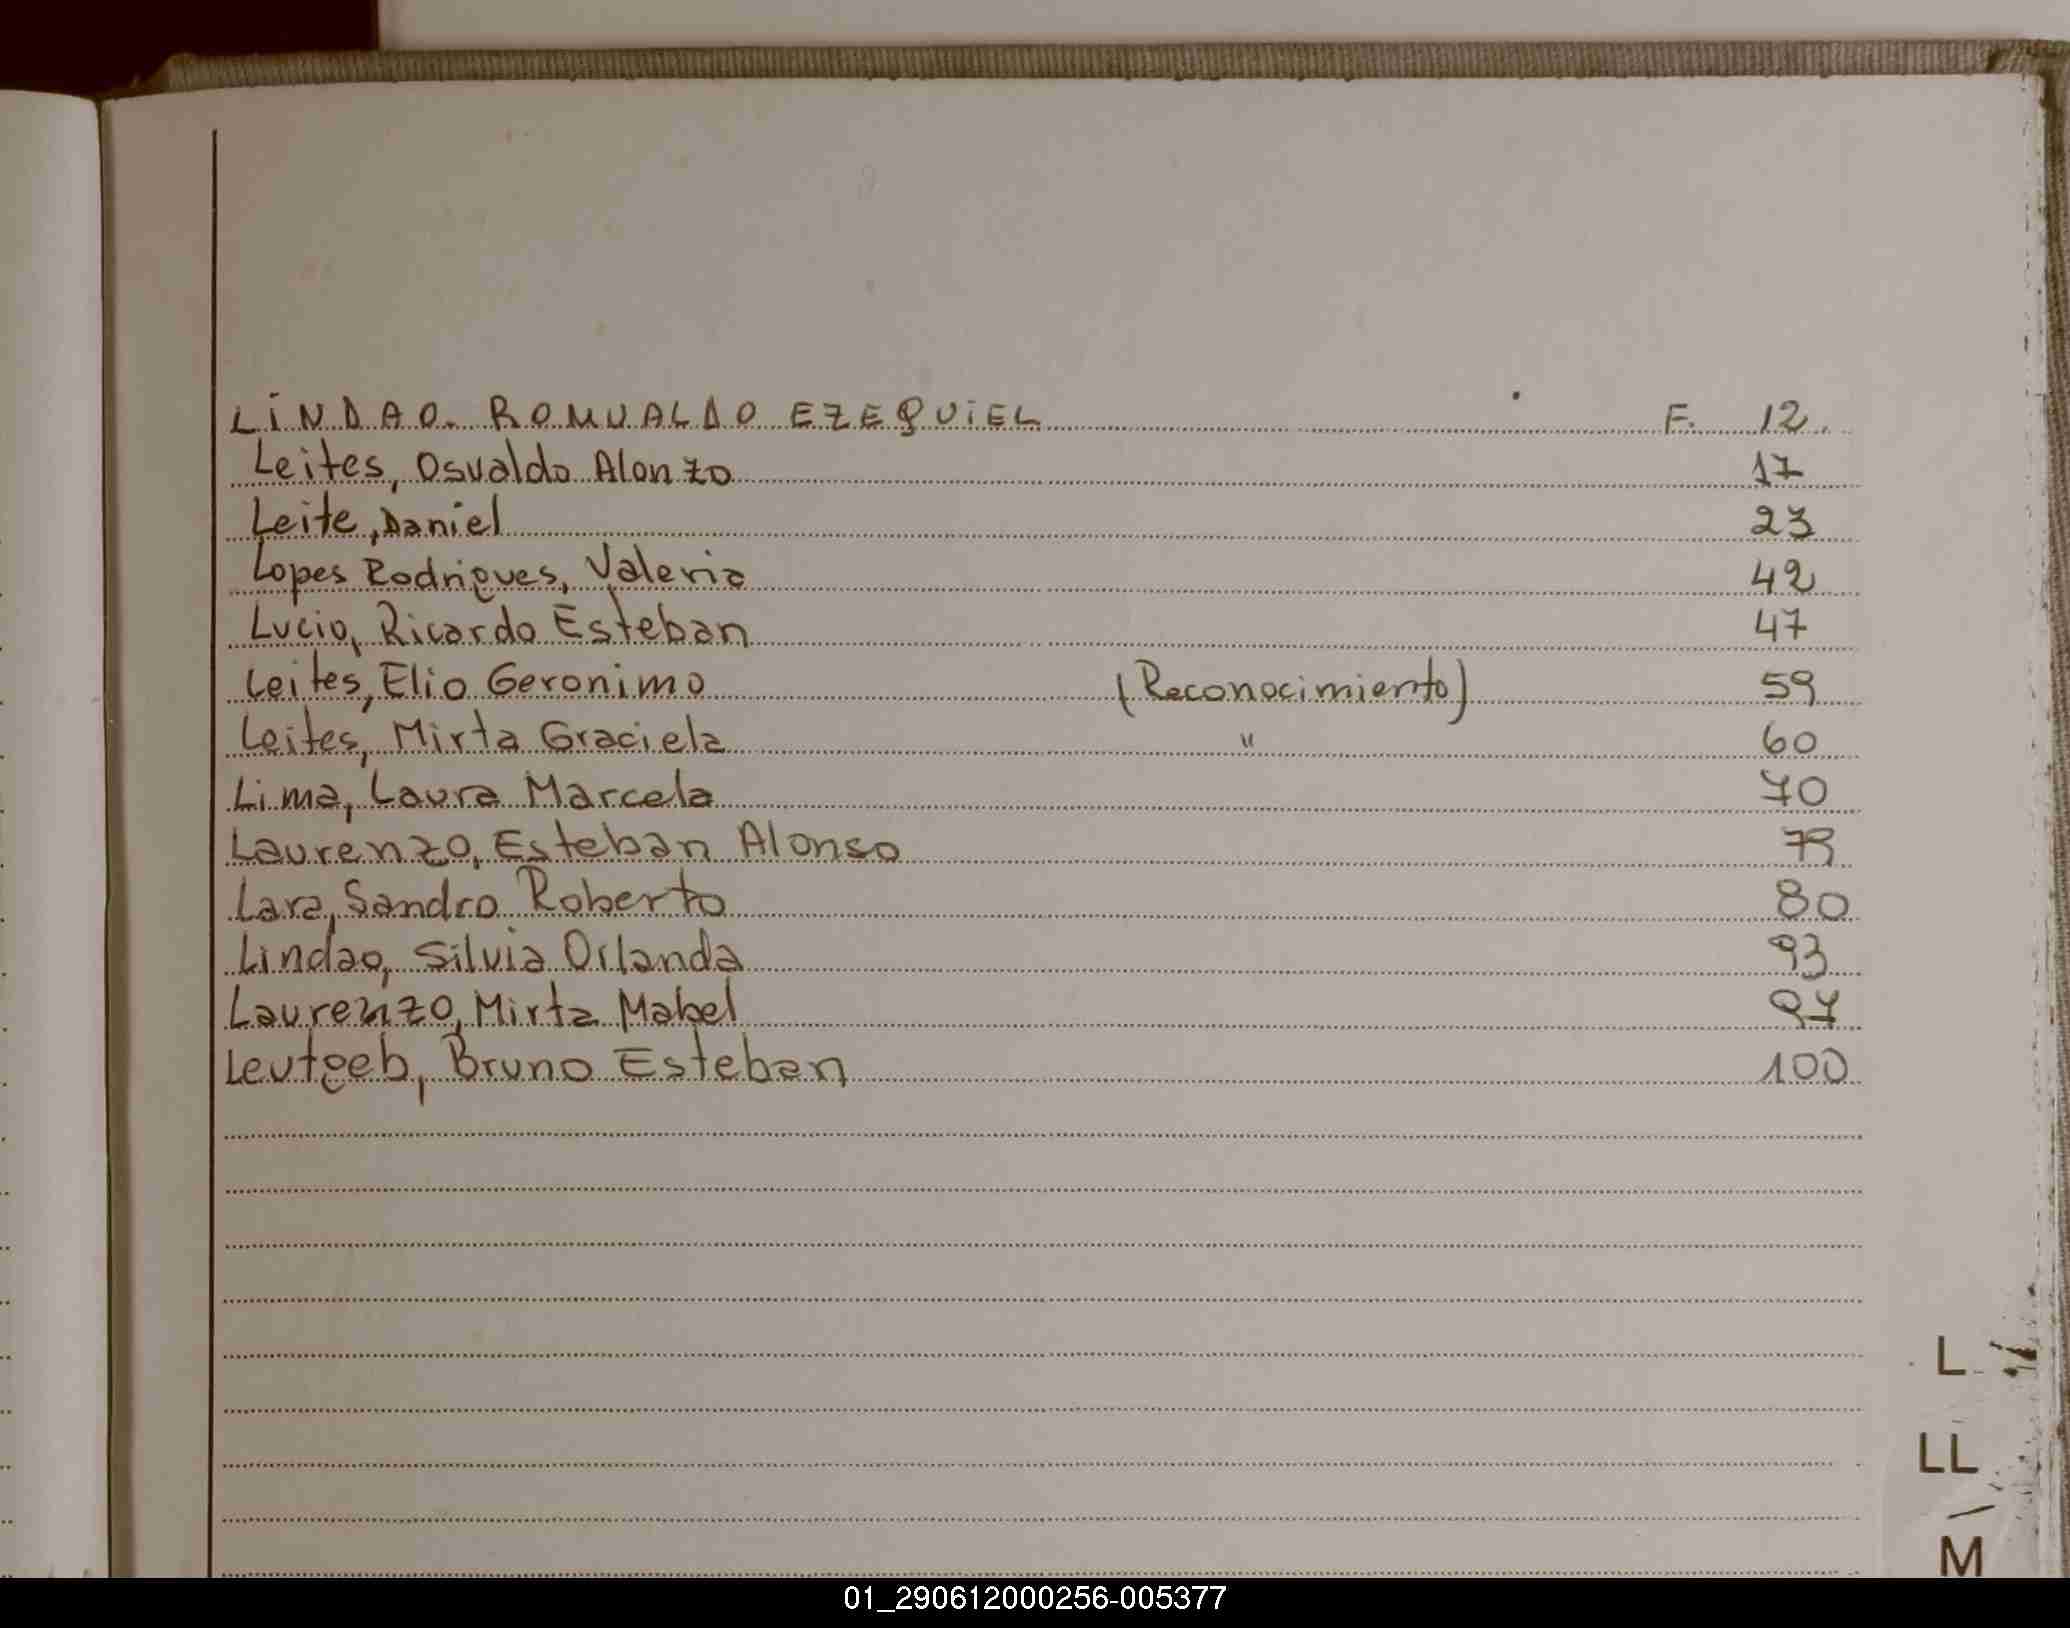 LINDAO. ROMUALDO EZEQUIEL F. 12.
Leites, Osvaldo Alonzo 17
Leite, Daniel 23
Lopes Rodrigues, Valeria 42
Lucio, Ricardo Esteban 47
Leites, Elio Geronimo (Reconocimiento) 59
Leites, Mirta Graciela " 60
Lima, Laura Marcela 70
Laurenzo, Esteban Alonso 79
Lara, Sandro Roberto 80
Lindao, Silvia Orlanda 93
Laurenzo, Mirta Mabel 97
Leutgeb, Bruno Esteban 100
L
LL
M
01_290612000256-005377